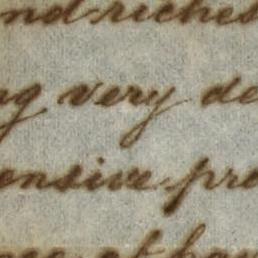 nd riches
ng very de
ensive pre